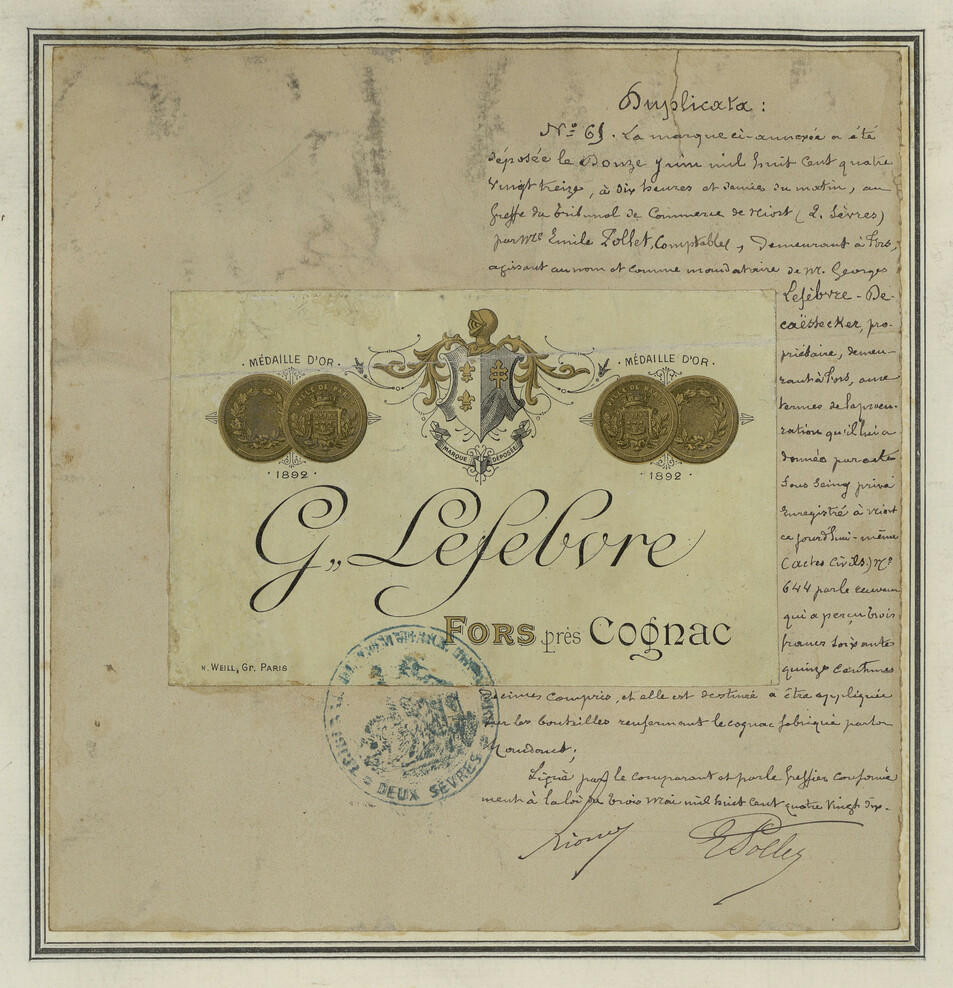 Duplicata :
N° 61. La marque ci-annexée a été
déposée le Douze Juin mil huit cent quatre
vingt treize, à dix heures et demie du matin, au
Greffe du tribunal de Commerce de Niort (2. Sèvres)
par Mr Emile Pollet, Comptable, demeurant à Fors,
agissant au nom et comme mandataire de M. Georges
Lefèbvre-De-
caëstecker, pro-
priétaire, demeu-
rant à Fors, aux
termes de la procu-
ration qu'il lui a
donnée par acte
sous seing privé
enregistré à Niort
ce jourd'hui-même
(actes civils) N°
644 par le receveur
qui a perçu trois
francs soixante
quinze centimes
décimes compris, et elle est destinée à être appliquée
sur les bouteilles renfermant le cognac fabriqué par son
Mandant.
Signé par le comparant et par le Greffier conformé
ment à la loi du trois Mai mil huit cent quatre vingt dix.
EPollet
MÉDAILLE D'OR
1892
MARQUE DÉPOSÉE
MÉDAILLE D'OR
1892
G. Lefebvre
FORS près Cognac
N. WEILL, Gr. PARIS
DEUX SÈVRES